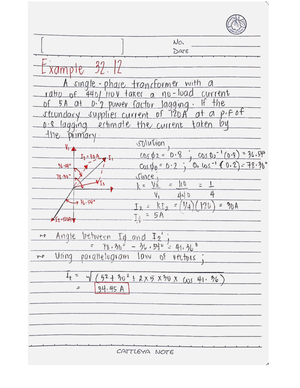 No.
Date
Example 32.12
A single-phase transformer with a
ratio of 440/110V takes a no-load current
of 5A at 0.2 power factor lagging. If the
secondary supplies current of 120A at a p.f of
0.8 lagging estimate the current taken by
the primary
solution;
cos φ2 = 0.8 ; cos φ2⁻¹ (0.8) = 36.54°
cos φ0 = 0.2 ; φ0 cos⁻¹ (0.2) = 78.30°
since;
k = V2/V1 = 110/440 = 1/4
I2' = KI2 = (1/4)(120) = 30A
I0 = 5A
V1
I2' = 30A
I1
36.54°
78.30°
V2
~ Angle between I0 and I2';
= 78.30° - 36.54° = 41.36°
~ Using parallelogram law of vectors;
I1 = √(5² + 30² + 2 x 5 x 30 x cos 41.36)
= 34.45 A
CATTLEYA NOTE